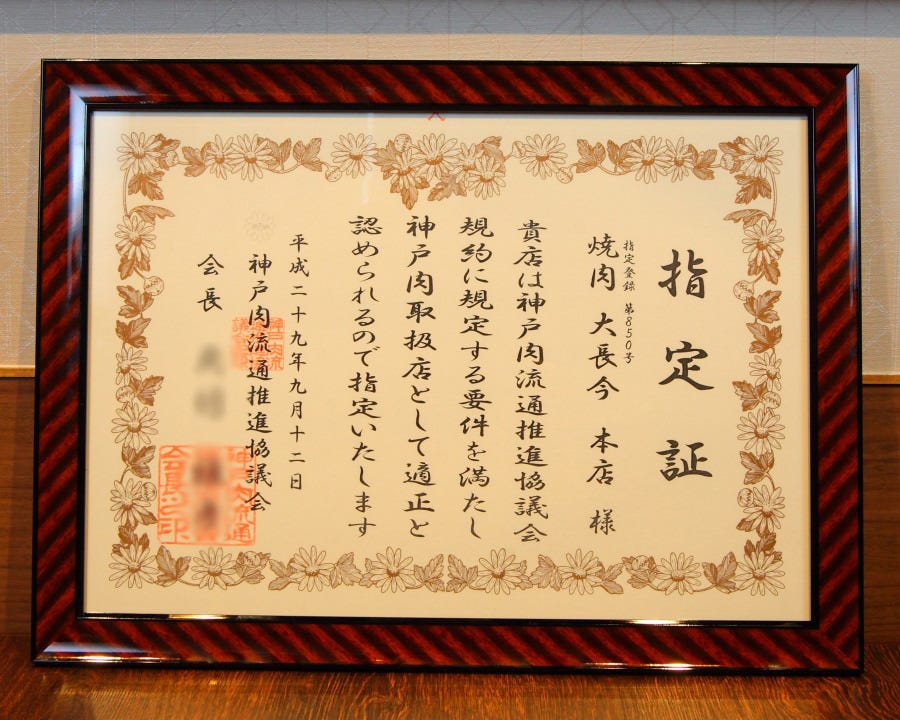 指定証
指定登録 第850号
焼肉 大長今 本店 様
貴店は神戸肉流通推進協議会
規約に規定する要件を満たし
神戸肉取扱店として適正と
認められるので指定いたします
平成二十九年九月十二日
神戸肉流通推進協議会
会長